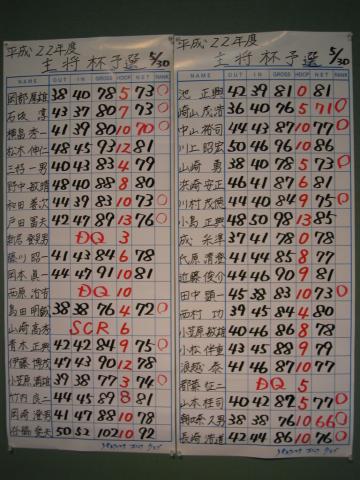 平成22年度
主将杯予選 5/30
NAME OUT IN GROSS HDCP NET RANK
岡部厚雄 38 40 78 5 73 ○
石坂 淳 43 37 80 7 73 ○
横島秀一 41 39 80 10 70 ○
松木伸仁 48 45 93 12 81
三好一男 40 43 83 4 79
野中敏靖 48 40 88 8 80
和田善次 44 39 83 10 73 ○
戸田富夫 42 47 89 13 76 ○
DQ 3
藤川昭一 41 43 84 6 78
岡本眞一 44 47 91 10 81
西原治 DQ 10
島田明 38 38 76 4 72 ○
山崎高 SCR 6
青木正典 42 42 84 9 75 ○
伊藤博茂 47 43 90 12 78
小笠原満雄 39 38 77 3 74 ○
竹内良二 44 45 89 8 81
岡崎澄男 41 47 88 10 78
50 52 102 10 92
平成22年度
主将杯予選 5/30
NAME OUT IN GROSS HDCP NET RANK
池 正典 42 39 81 0 81
崎山茂浩 40 36 76 5 71 ○
中山裕司 44 43 87 10 77 ○
川上昭宏 50 46 96 10 86
山崎 勇 38 40 78 5 73 ○
浜崎安正 46 41 87 6 81
川村茂徳 44 40 84 9 75 ○
小島正興 48 50 98 13 85
成 永津 37 41 78 0 78
代原清登 41 44 85 8 77
近藤俊介 44 46 90 9 81
田中顕一 45 38 83 10 73 ○
西村 功 39 45 84 4 80
小笠原敏雄 40 46 86 8 78
小松伴重 43 45 88 9 79
浪越 泰 41 46 87 10 77
都築征二 DQ 5
山本桂司 40 42 82 5 77 ○
朝比奈久男 38 38 76 10 66 ○
長崎浩道 42 44 86 10 76 ○